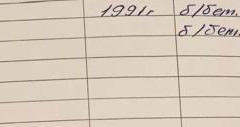 1991г б/бет.
б/бет.